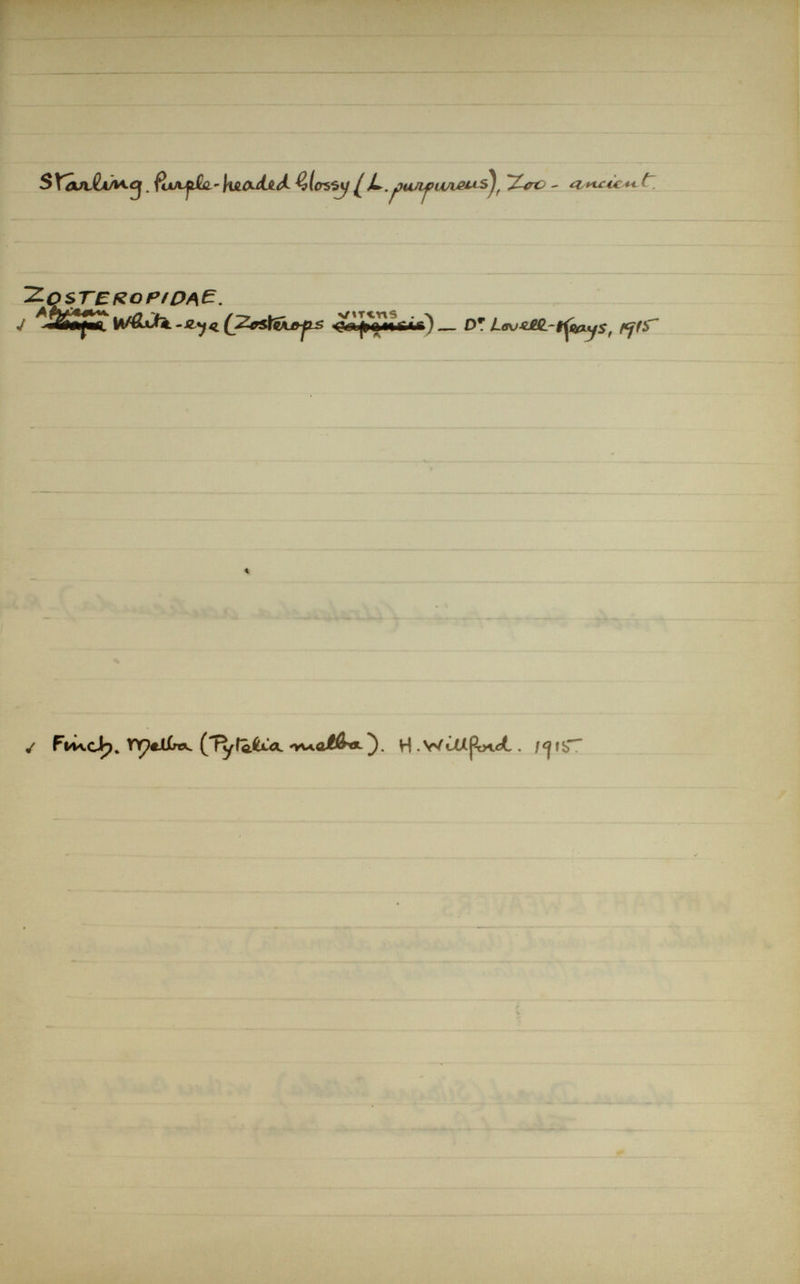 Starling. Purple-headed Glossy (L. purpureus), Zoo - ancient.
ZOSTEROPIDAE.
African virens
✓ White-eye (Zosterops capensis) — Dr Lovell-Keays, 1915
✓ Finch. Melba (Pytelia melba). H. Willford. 1915